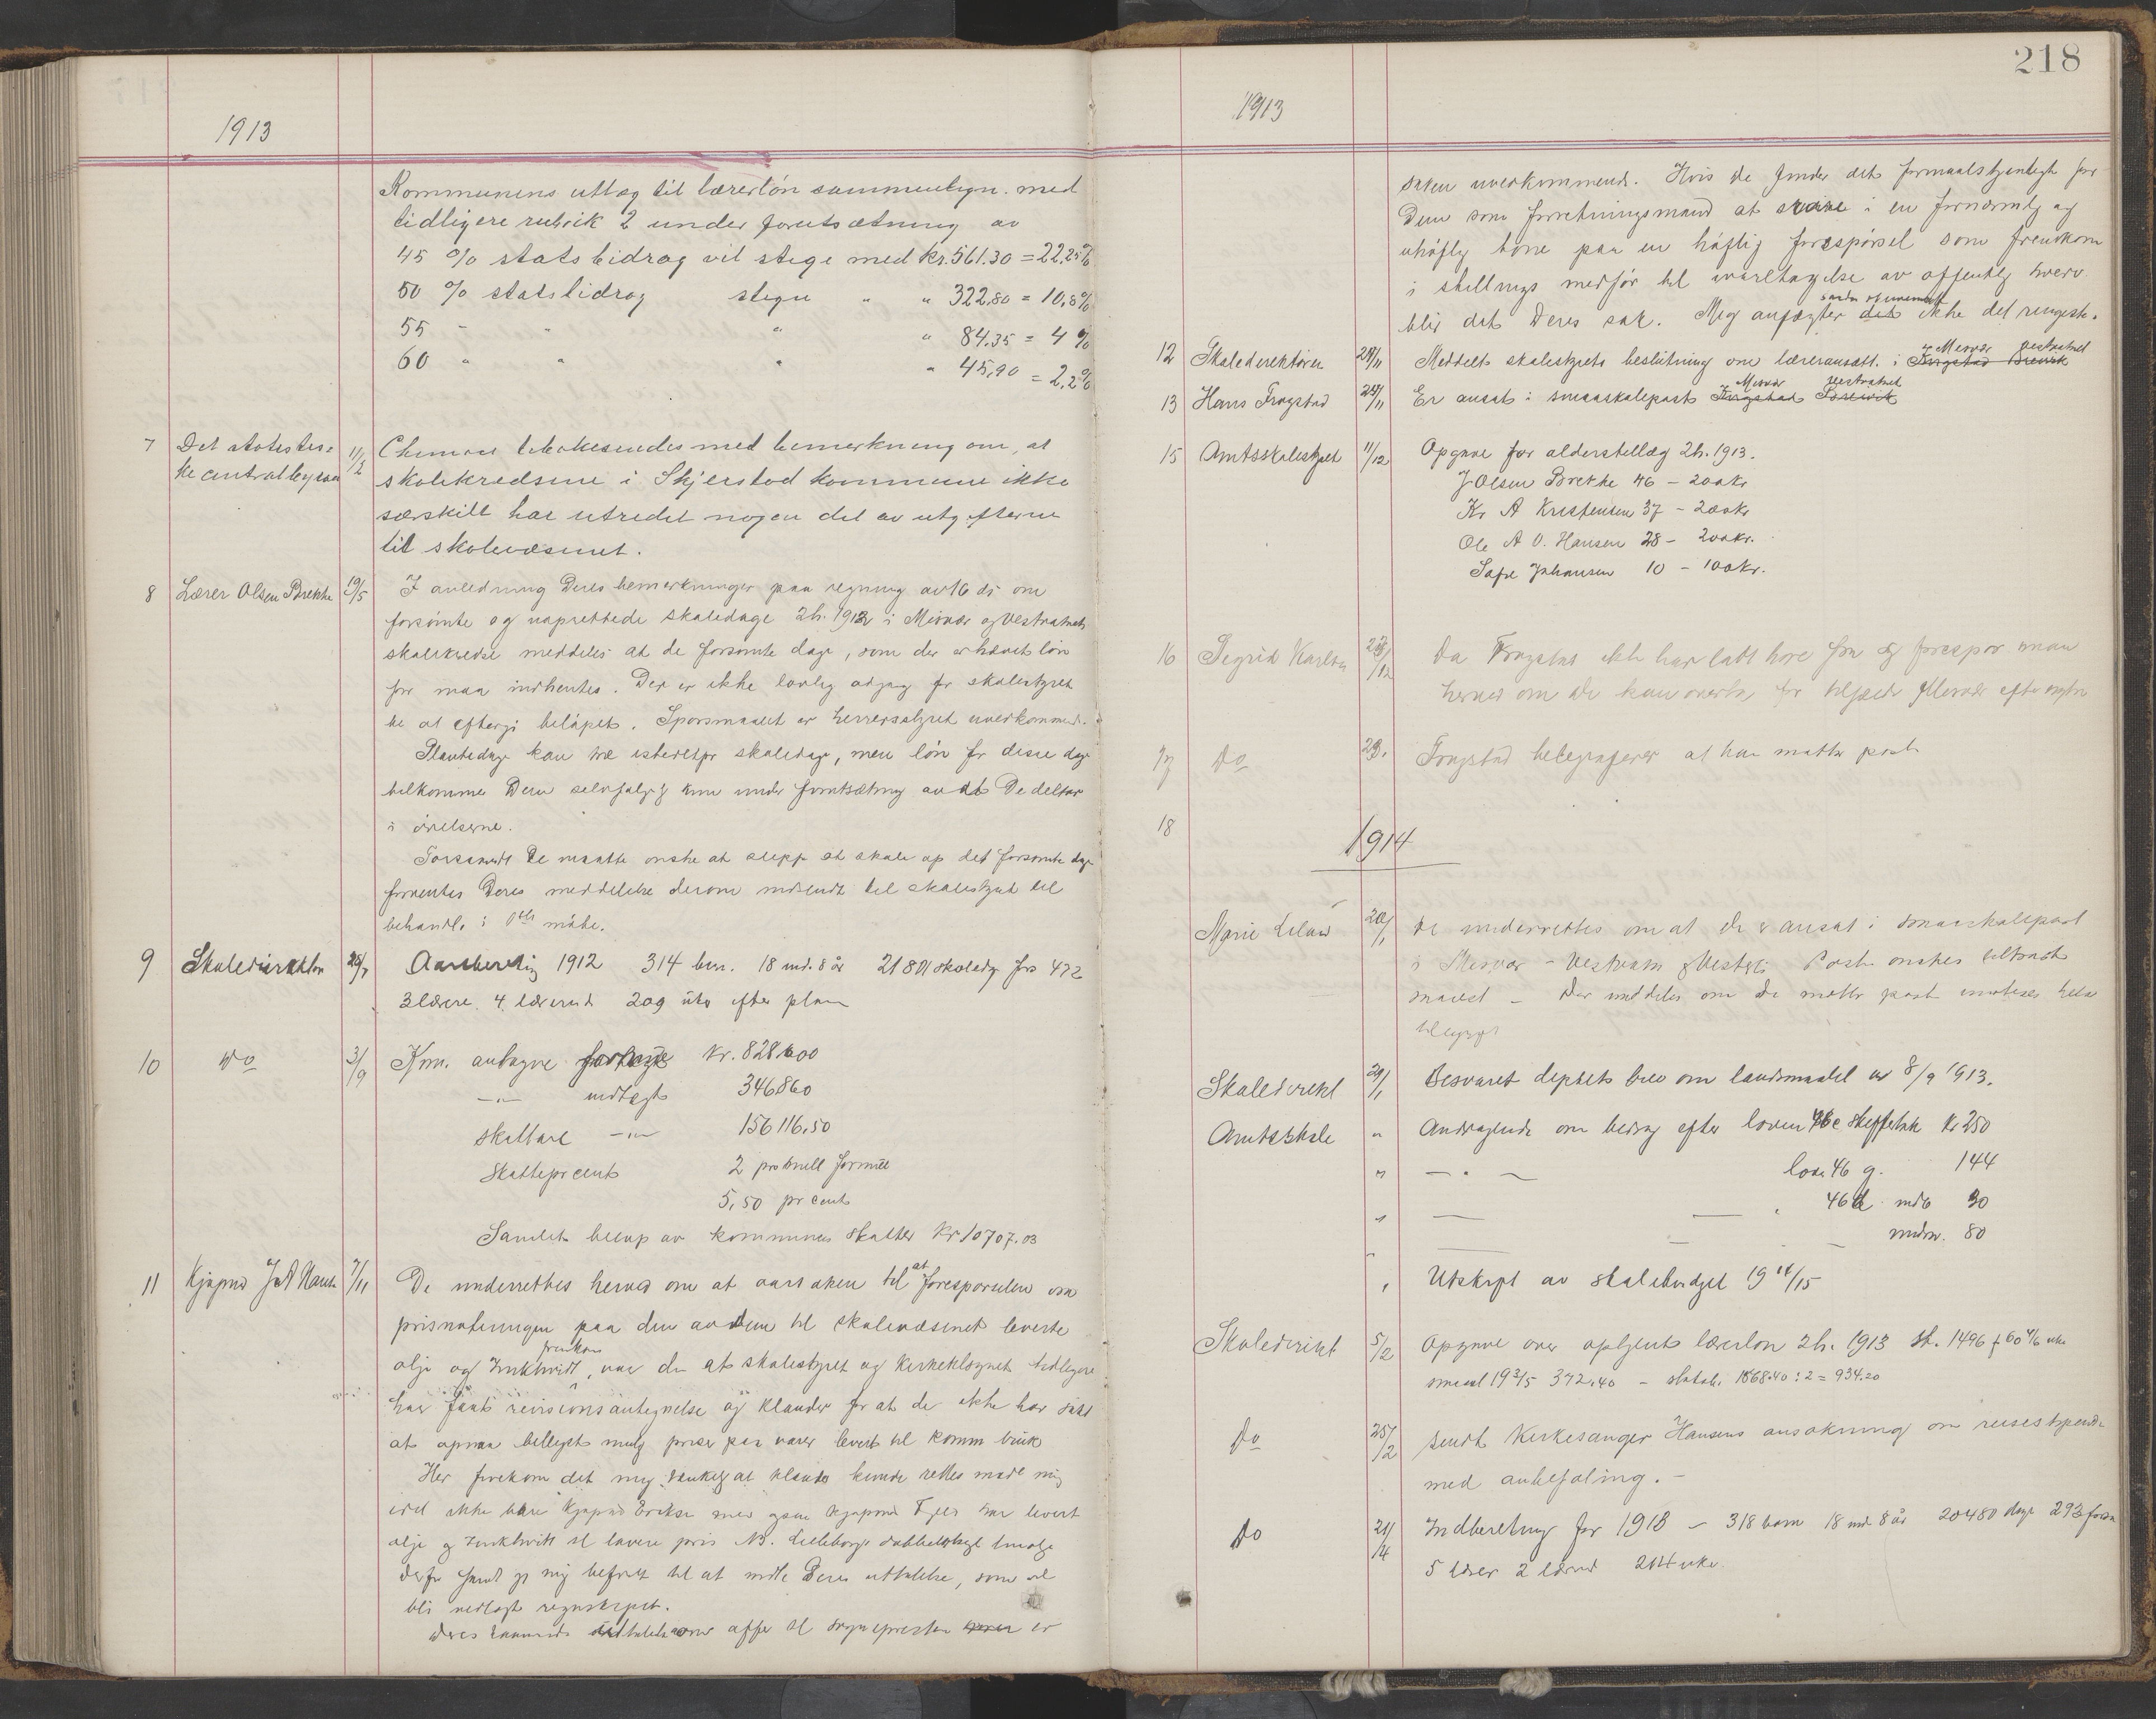 1913
Kommunens utlæg til lærerløn sammenlign. med
tidligere rubrik 2 under forutsætning av
45 % statsbidrag vil stige med kr. 561.30 = 22.25%
50 % statsbidrag stige " " 322,80 = 10,8%
55 - " " " 84,35 = 4 %
60 " " " " 45,90 = 2,2%
7 Det statistis= 11/2 Chemaer tilbakesendes med bemerkning om, at
ke centralbyraa skolekredsene i Skjerstad kommune ikke
særskilt har utredet nogen del av utgifterne
til skolevæsenet.
8 Lærer Olsen Brekke 19/5 I anledning Deres bemerkninger paa regning av 16 ds om
forsømte og uoprettede skoledage 2h. 1912 i Misvær og Vestvatnets
skolekredse meddeles at de forsømte dage, som der er hævet løn
for maa indhentes. Der er ikke lovlig adgang for skolestyret
til at eftergi beløpet. Spørsmaalet er herredsstyret uvedkommende.
Plantedage kan træ istedetfor skoledage, men løn for disse dage
tilkommer Dem selvfølgelig kun under forutsætning av at De deltar
i øvelserne.
Forsaavidt De maatte ønske at slippe at skole op det forsømte dage
forventes Deres meddelelse derom indsendt til skolestyret til
behandl. i møte.
9 Skoledirektør 28/7 Aarsberetnig 1912 314 barn. 18 ind. 8 år 21801 skoledg fors 472
3 lærere. 4 lærerind 209 uker efter plan
10 Do 3/9 Kom. antagne formue kr. 828600
-"- indtægt 346860
skattbare -"- 156116,50
Skatteprocent 2 pro mille formue
5,50 procent
Samlet beløp av kommunens skatter kr 10707.03
11 Kjøpmd Hansen 7/11 De underrettes herved om at aarsaken til at forespørselen om
prisnoteringen paa den av dem til skolevæsenet leverte
olje og zinkhvidt fremkom, var den at skolestyret og kirketilsynet tidligere
har faat revisionsantegnelse og klander for at de ikke har søkt
at opnaa billigst mulig priser paa varer levert til komm bruk
Her forekom det mig tænkelig at klander kunde rettes mot mig
idet ikke bare kjøpmd Eriksen men ogsaa kjøpmd har levert
olje og zinkhvitt til lavere pris NB. Lilleborgs dobbeltkogt linolje
derfor fandt jeg mig beføiet til at indh Deres uttalelse, som vil
bli vedlagt regnskapet.
Deres uttalelse om offer til sogneprester er
218
1913
saken uvedkommende. Hvis De finder det formaalstjenligt for
Dem som forretningsmand at svare i en fornærmelig og
uhøflig tone paa en høflig forespørsel som fremkom
i stillings medfør til ivaretagelse av offentlig hverv
blir det Deres sak. Mig anfægter det ikke det ringeste.
12 Skoledirektøren 24/11 Meddelt skolestyrets beslutning om læreransætt. i Misvær Vestvatnet
13 Hans Frogstad 24/11 Er ansat i smaaskolepost Misvær Vestvatnet
15 Amtsskolestyret 11/12 Opgave for alderstillæg 2h. 1913.
J Olsen Brekke 46 – 200kr
Kr A Kristensen 37 – 200kr
Ole A O. Hansen 28 – 200kr.
Sofie Johansen 10 – 100kr.
16 Sigrid Karlsen 23/12 Da Frogstad ikke har latt høre fra sig forespør man
herved om De kan overta
17 Do 23. Frogstad telegraferer at han motta post
18
1914
Marie 20/1 De underrettes om at De er ansat i smaaskolepost
i Misvær – Vestvatn Post ønskes tiltraadt
snarest – Der meddeles om De mottar post
Skoledirekt 29/1 Besvaret deptets brev om landsmaalet av 8/9 1913.
Amtsskole " Andragende om bidrag efter loven 46 e Skeffetak kr 250
" – " – loven 46 g. 144
" 46 30
" 80
" Utskrift av skolebudget 1914/15
Skoledirekt 5/2 Opgave over optjent lærerløn 2h. 1913 st. 1496 f 60 4/6 uke
372.40 – statsb. 1868.40 : 2 = 934.20
Do 25/2 Sendt Kirkesanger Hansens ansøkning om reisestipendie
med anbefaling. –
Do 21/4 Indberetning for 1913 – 318 barn 18 ind 8 år 20480 dage 293 forsø
5 lærer 2 lærerind 214 uker